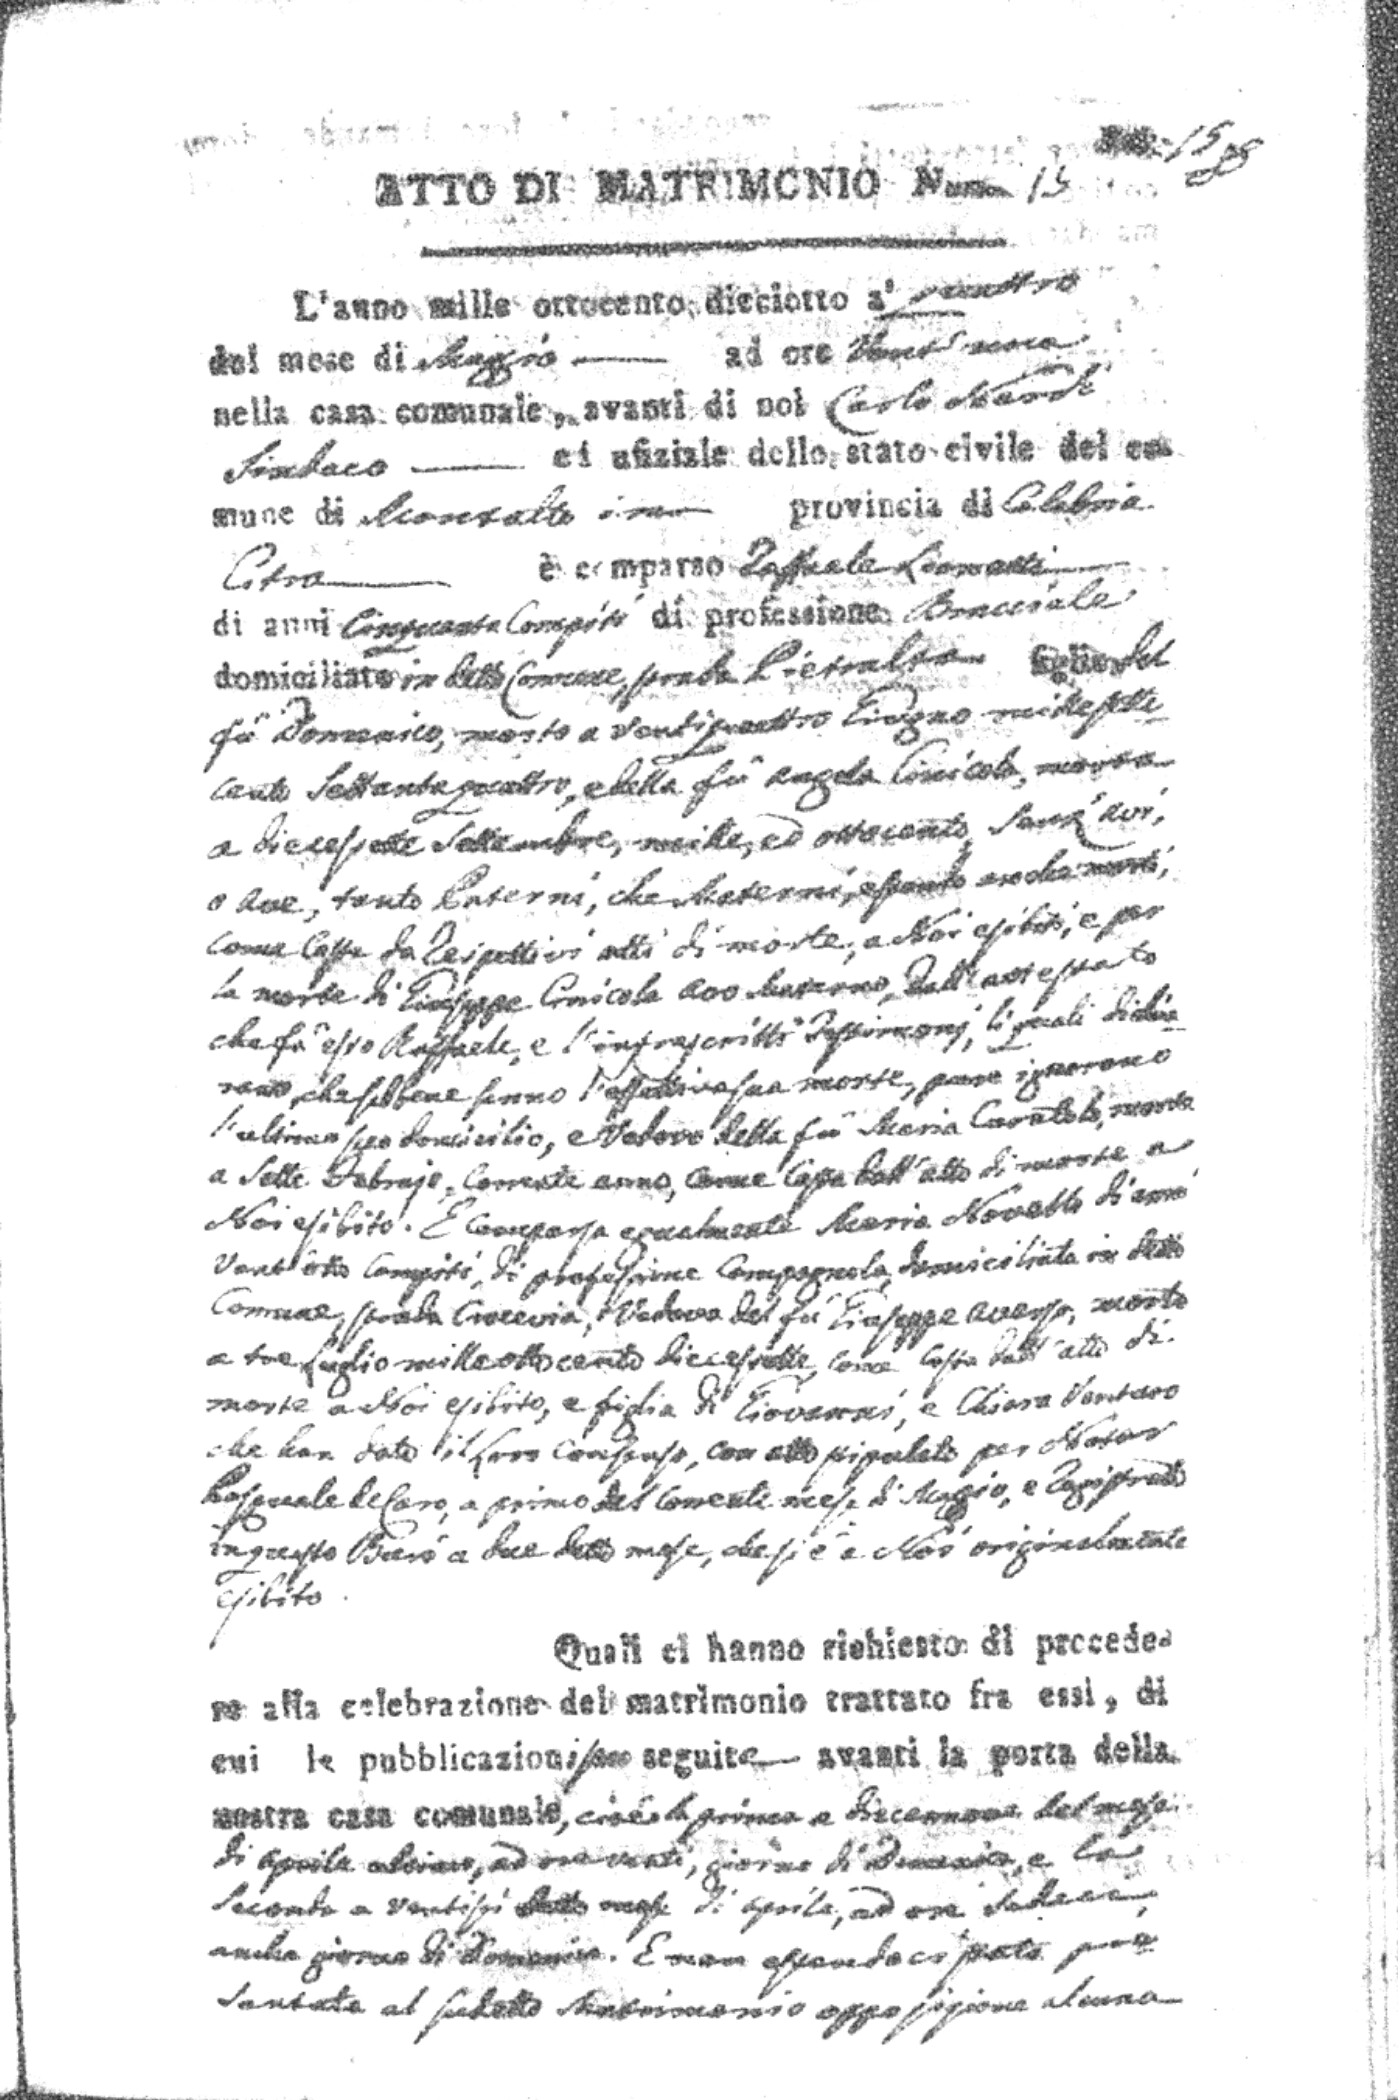 15
ATTO DI MATRIMONIO Num. 15
L'anno mille ottocento diciotto a' quattro
del mese di Maggio ad ore Venti una
nella casa comunale, avanti di noi Carlo Nardi
Sindaco ed ufiziale dello stato civile del co-
mune di Montalto provincia di Calabria
Citra è comparso Raffaele
di anni Cinquanta Compiti di professione Bracciale
domiciliato in detto Comune, strada Pietralta figlio del
fù Domenico, morto a Ventiquattro Giugno mille sette
cento Settantaquattro, e della fù Angela Cinicola, morta
a diecesette Settembre, mille, ed ottocento, senz'avi,
o ave, tanto Paterni, che Materni, essendo anche morti,
come Costa da Respettivi atti di morte, a Noi esibiti, e per
la morte di Giuseppe Cinicola avo Materno, dall'attestato
che fà esso Raffaele, e l'infrascritti Testimonj, li quali dichia-
rano, che sebbene sanno l'effettiva sua morte, pure ignorano
l'ultimo suo domicilio, e Vedovo della fù Maria morta
a Sette Febrajo, Corrente anno, come Costa dall'atto di morte a
Noi esibito. È Comparsa egualmente Maria Novello di anni
Vent'otto Compiti, di professione Campagnola, domiciliata in detto
Comune, strada Crocevia, Vedova del fù Giuseppe Averso, morto
a tre Luglio mille otto cento diecesette, come Costa dall'atto di
morte a Noi esibito, e figlia di Giovanni, e Chiara Ventura
che han dato il Loro Consenso, con atto stipulato per Notar
Pasquale de Caro, a primo del Corrente mese di Maggio, e Registrato
in questo Burò a due detto mese, che si è a Noi originalmente
esibito.
Quali ci hanno richiesto di procede-
re alla celebrazione del matrimonio trattato fra essi, di
cui le pubblicazioni sono seguite avanti la porta della
nostra casa comunale, cioè la prima a diecennove del mese
di Aprile ad ore venti, giorno di Domenica, e la
seconda a ventisei detto mese di Aprile, ad ore Sedeci,
anche giorno di Domenica. E non essendoci stata pre
sentata al sudetto Matrimonio opposizione alcuna